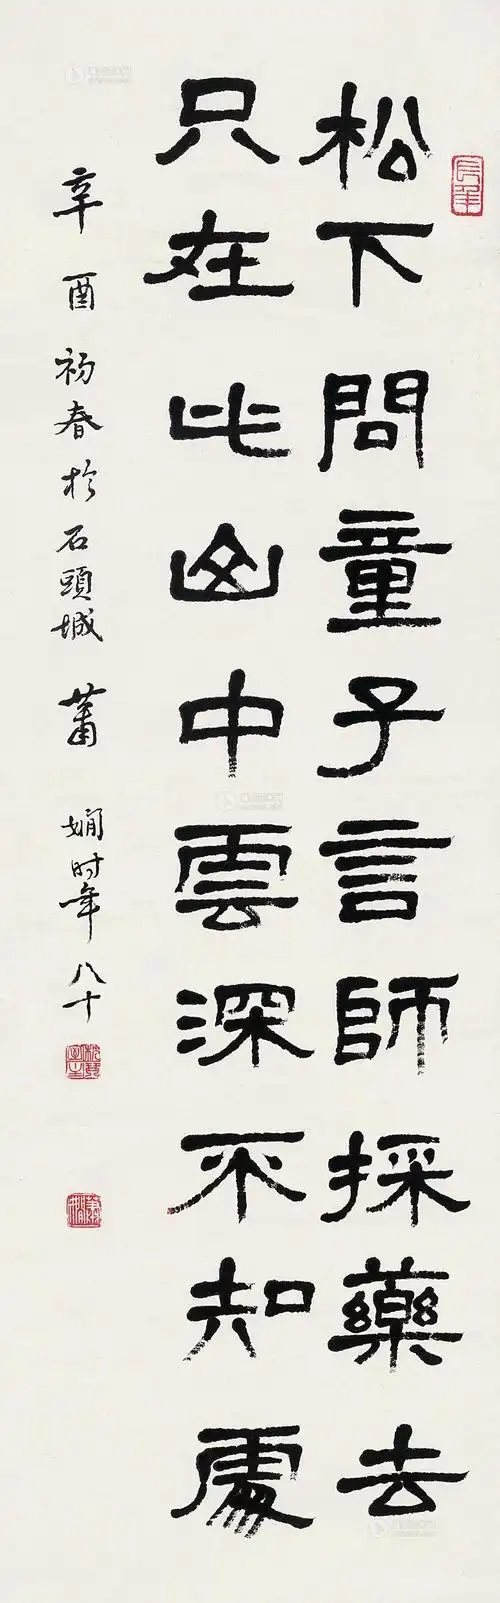 松下問童子言師採藥去
只在此山中雲深不知處
辛酉初春於石頭城 蕭嫻时年八十